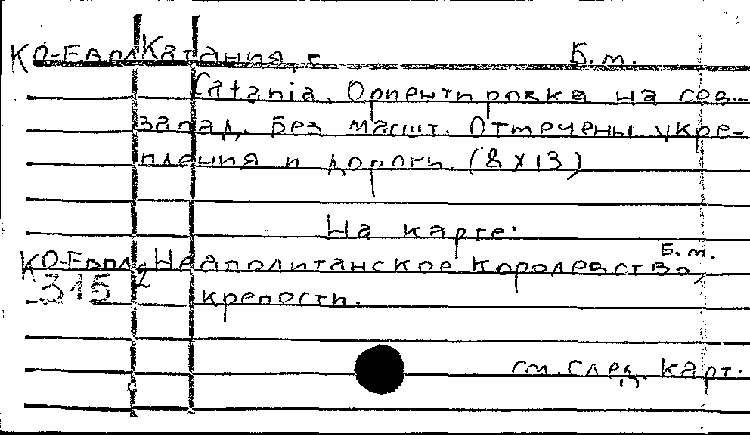 КО-Евпл Катания, г. Б.м.
Catania. Ориентировка на сев.-
запад. Без масшт. Отмечены укре-
пления и дороги. (8 х 13)
На карте:
Б.м.
КО-Евпл. Неаполитанское королевство,
315 2 крепости.
см. след. карт.